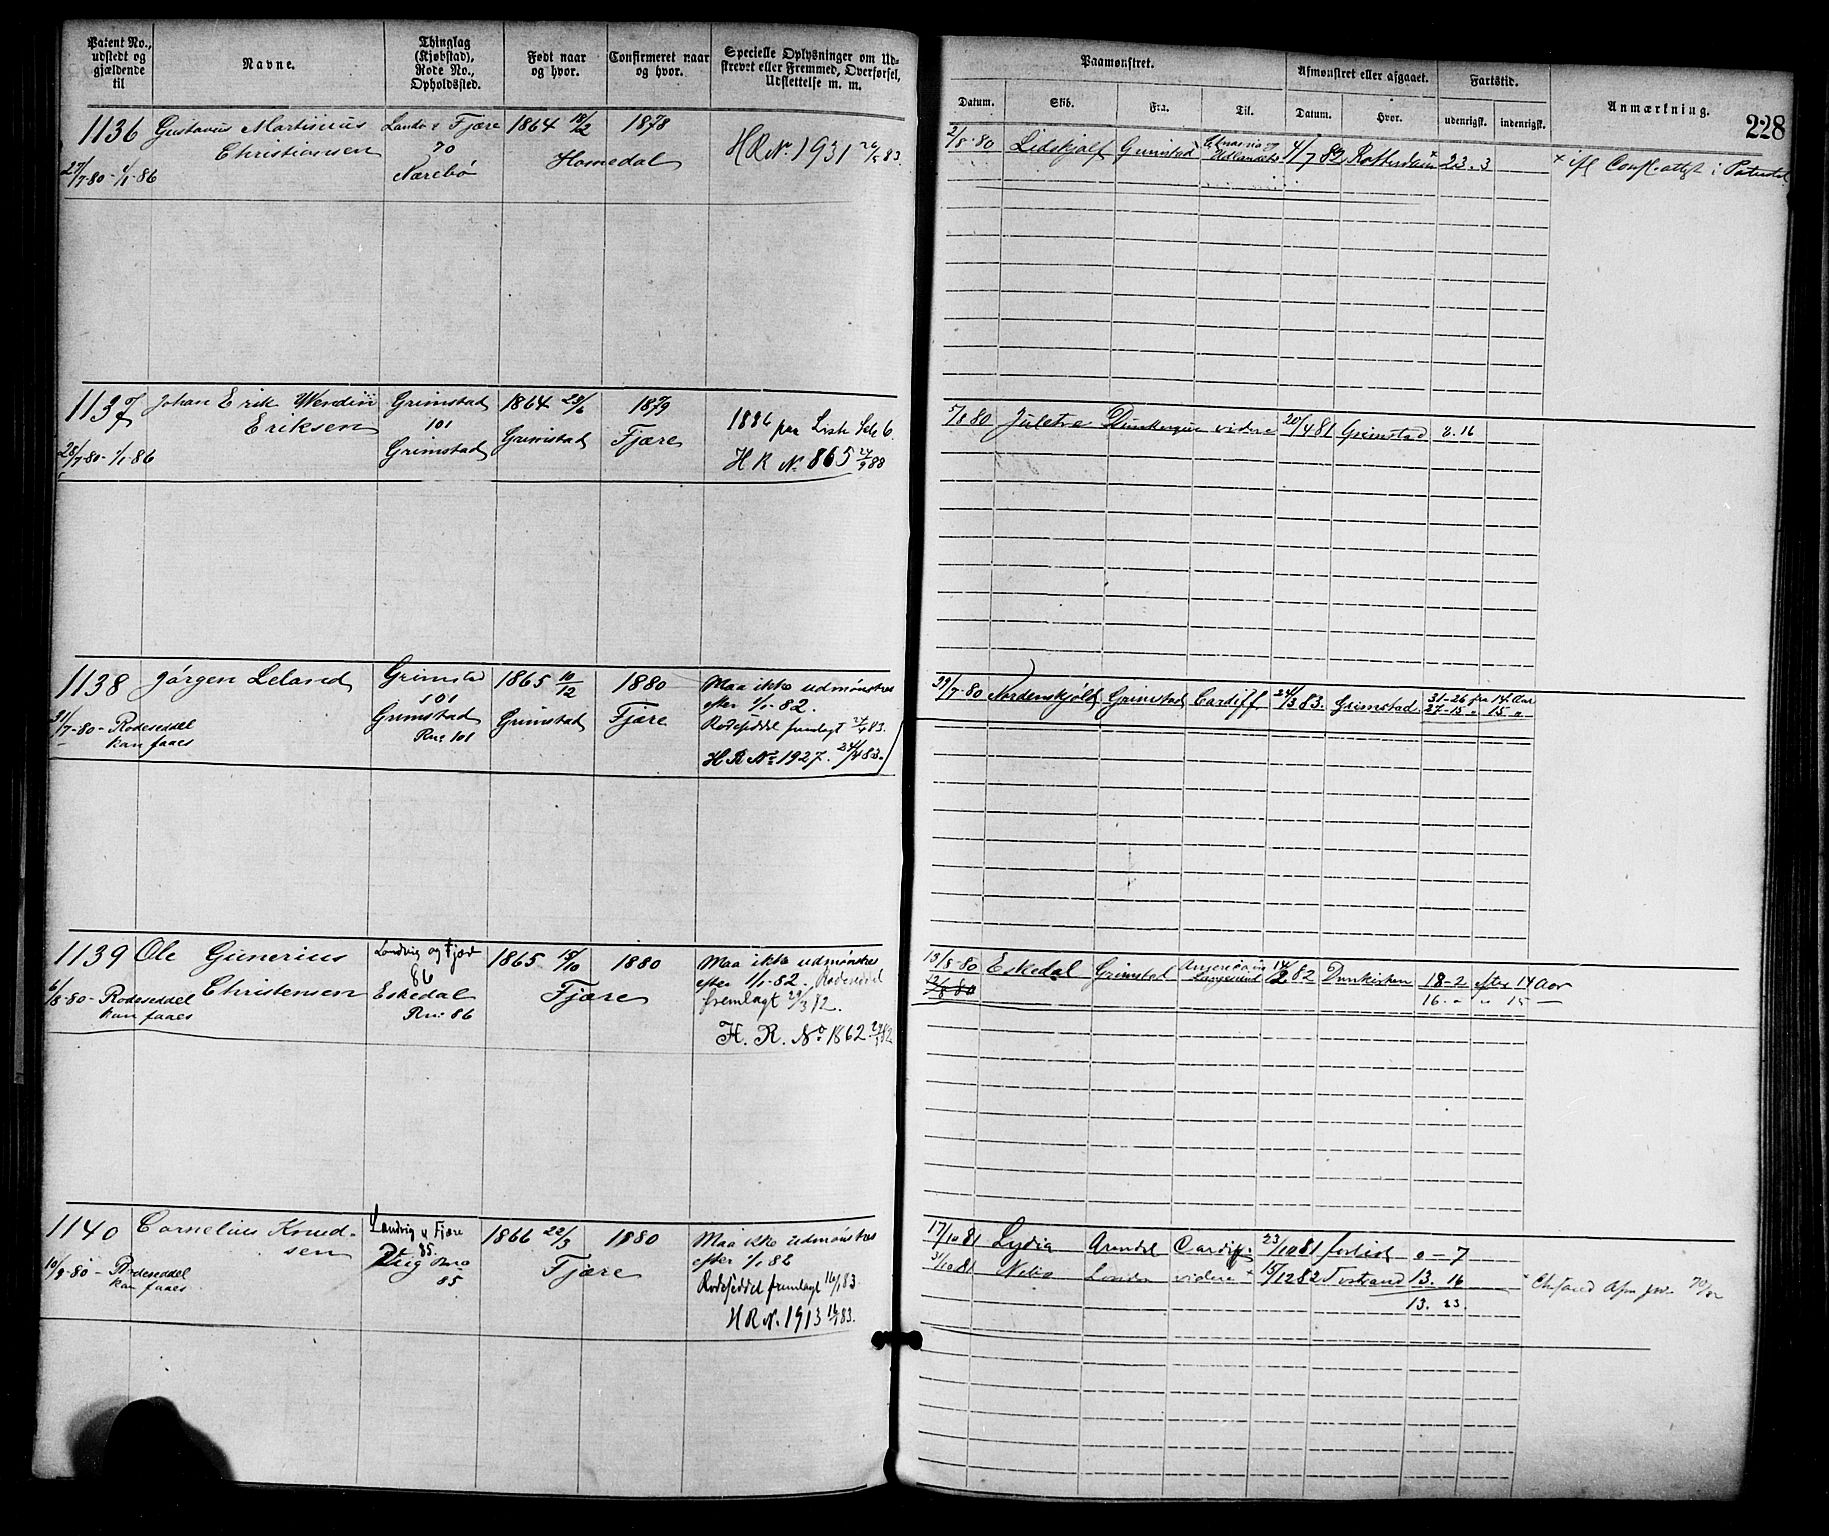 Patent No., udstedt og gjældende til
Navne.
Thinglag (Kjøbstad), Rode No., Opholdssted.
Født naar og hvor.
Confirmeret naar og hvor.
Specielle Oplysninger om Udstrevet eller Fremmed, Overførsel, Udslettelse m. m.
Paamønstret.
Afmønstret eller afgaaet.
Fartstid.
Anmærkning.
Datum.
Skib.
Fra.
Til.
Datum.
Hvor.
udenrigsk.
indenrigsk.
228
1136 Gustavus Martinius Landv. & Fjære 1864 18/2 1878
Christiansen 70 Homedal
27/7-80 - 1/1-86 Nærebø
H R No. 1931 26/5 83.
2/8-80 Lidskjalf Grimstad 4/7 82 Rotterdam × 23. 3
× Conf. attest i Patentet
1137 Johan Erik Wendin Grimstad 1864 28/6 1879
Eriksen 101 Grimstad Fjære
28/7-80 - 1/1-86 Grimstad
1886 paa Liste
H R No 865 27/9 88
5/8 80 Juletræ Dunkerque videre 20/4 81 Grimstad 8. 16
1138 Jørgen Leland Grimstad 1865 10/12 1880
101
31/7-80 - Rodeseddel kan faaes
Grimstad Grimstad Fjære
Rno 101
Maa ikke udmønstres
efter 1/1-82.
Rodeseddel fremlagt 27/4 83.
H R No 1927. 24/4 83.
Nordenskjöld Grimstad Cardiff 24/3 83. Grimstad 31-26 fra 14 Aar
27-15 " 15 "
1139 Ole Gunerius Landvig og Fjære 1865 18/10 1880
86
6/8-80 - Rodeseddel Christensen Eskedal Fjære
kan faaes Rno: 86
Maa ikke udmønstres
efter 1/1-82. Rodeseddel
fremlagt 29/3 82.
H. R. No 1862
13/8-80 Eskedal Grimstad 82 Dunkirken 18-2 efter 14 Aar
12/8 80
16. " " 15 —
1140 Cornelius Knud- Landvig & Fjære 1866 22/3 1880
sen 85.
10/9-80 - Rodeseddel kan faaes
Rno 85. Fjære
Maa ikke udmønstres
efter 1/1-82
Rodeseddel fremlagt 16/1 83
H R No. 1913 16/1 83.
17/10 81 Lydia Arendal Cardiff 23/10 81 forlist 0 - 7
31/10 81 Nebo London videre × 15/12 82 Tvestrand 13. 16
13. 23.